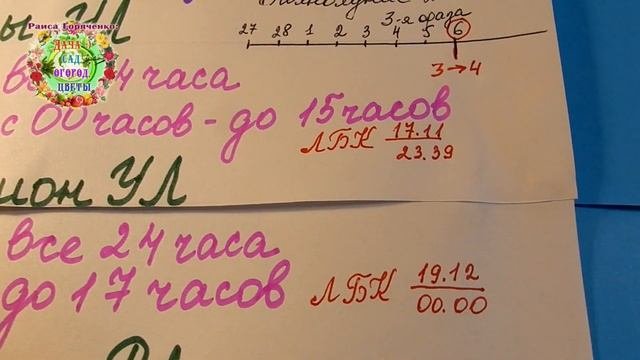 Раиса Горяченко:
ДАЧА
САД
ОГОРОД
ЦВЕТЫ
3-я фаза
27 28 1 2 3 4 5 6
3→4
ы УЛ
все 24 часа
с 00 часов - до 15 часов
ЛБК 17.11
23.39
ион УЛ
все 24 часа
до 17 часов
ЛБК 19.12
00.00